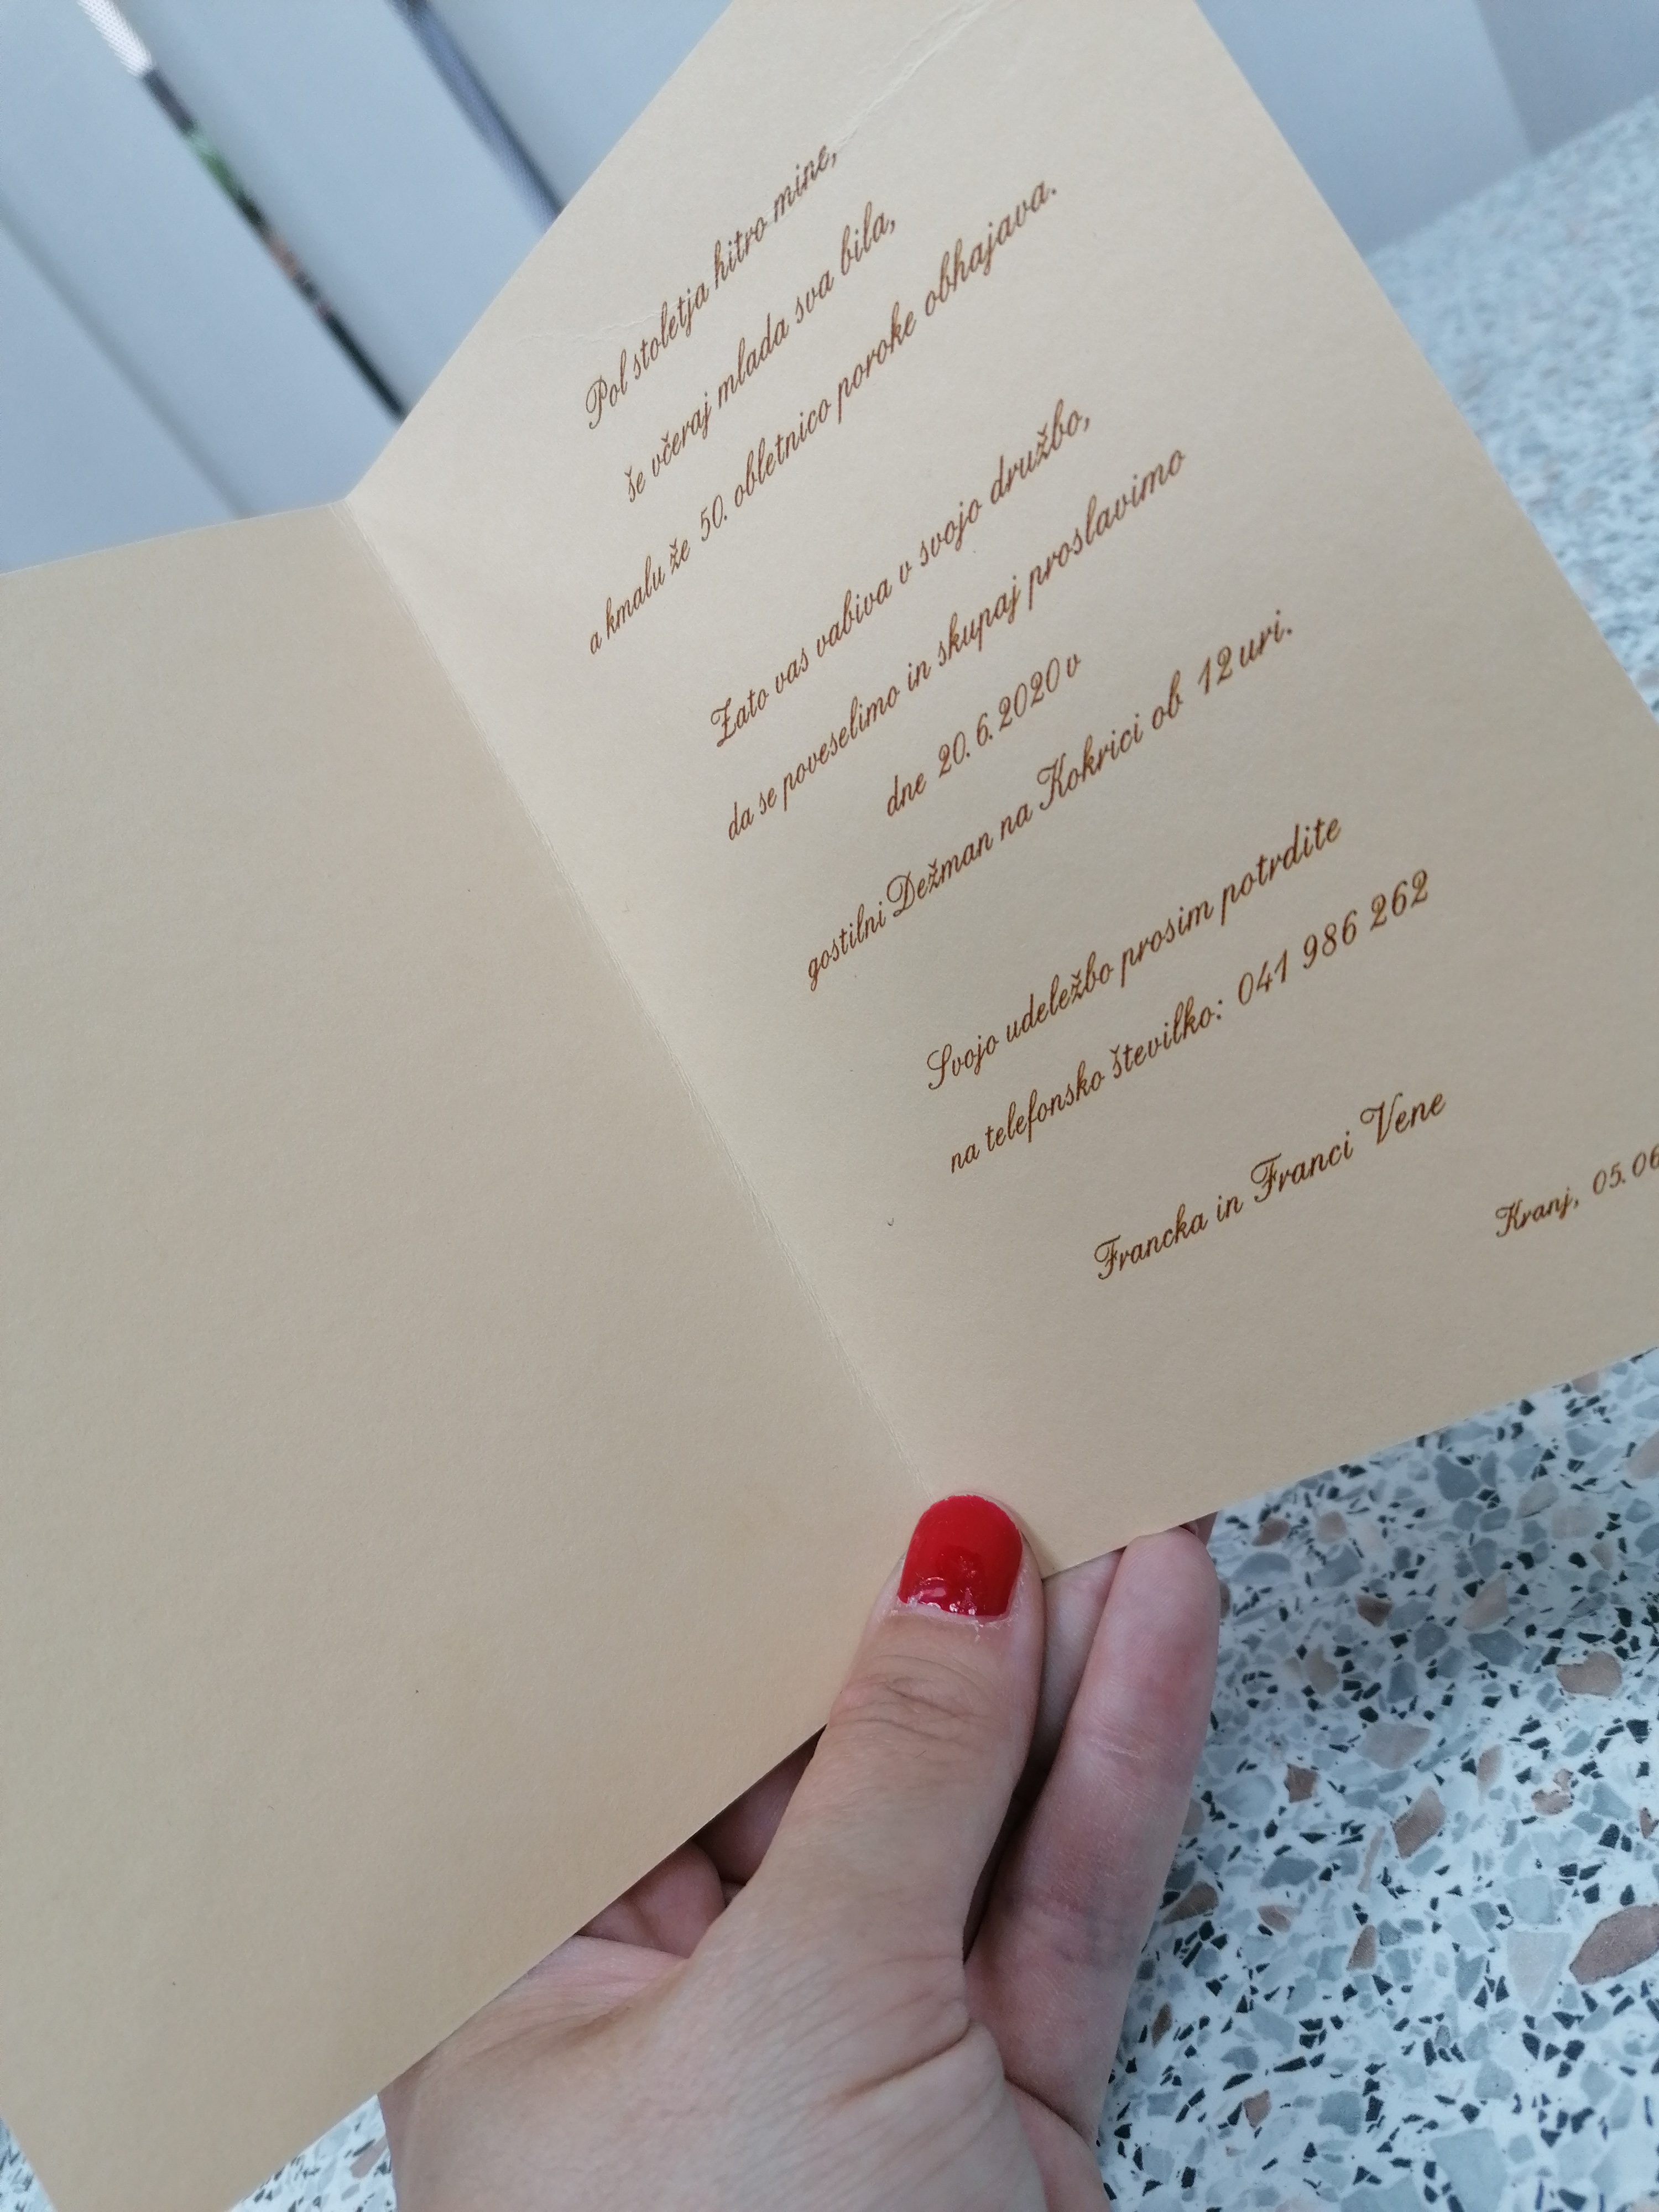 Pol stoletja hitro mine,
še včeraj mlada sva bila,
a kmalu že 50. obletnico poroke obhajava.
Zato vas vabiva v svojo družbo,
da se poveselimo in skupaj proslavimo
dne 20. 6. 2020 v
gostilni Dežman na Kokrici ob 12 uri.
Svojo udeležbo prosim potrdite
na telefonsko številko: 041 986 262
Francka in Franci Vene
Kranj, 05.06